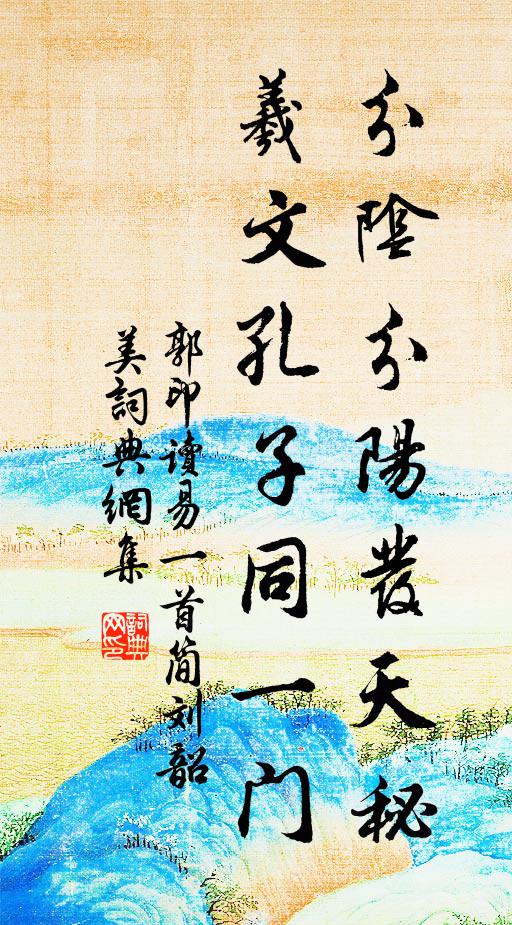 分陰分陽發天秘
羲文孔子同一门
郭印读易一首简刘韶
美詞典網集
詞典
网印